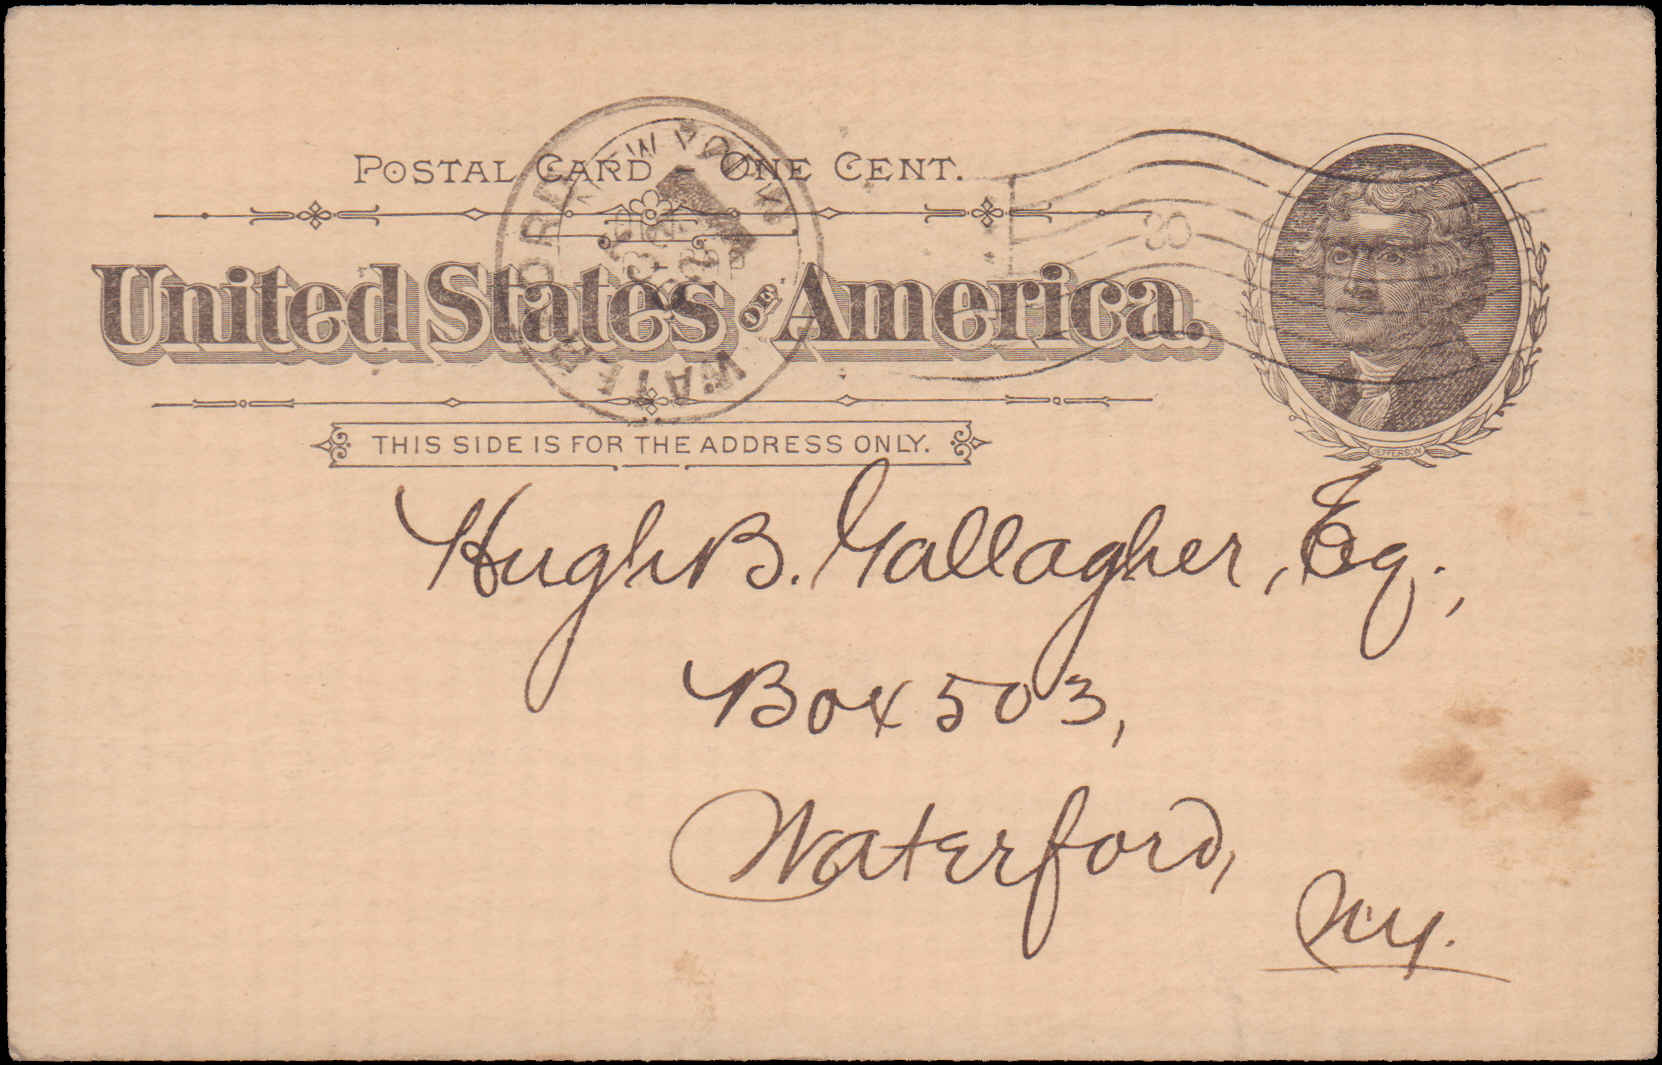 POSTAL CARD – ONE CENT.
United States OF America.
THIS SIDE IS FOR THE ADDRESS ONLY.
WATERFORD NEW YORK
30
JEFFERSON
Hugh B. Gallagher, Esq.,
Box 503,
Waterford,
N.Y.